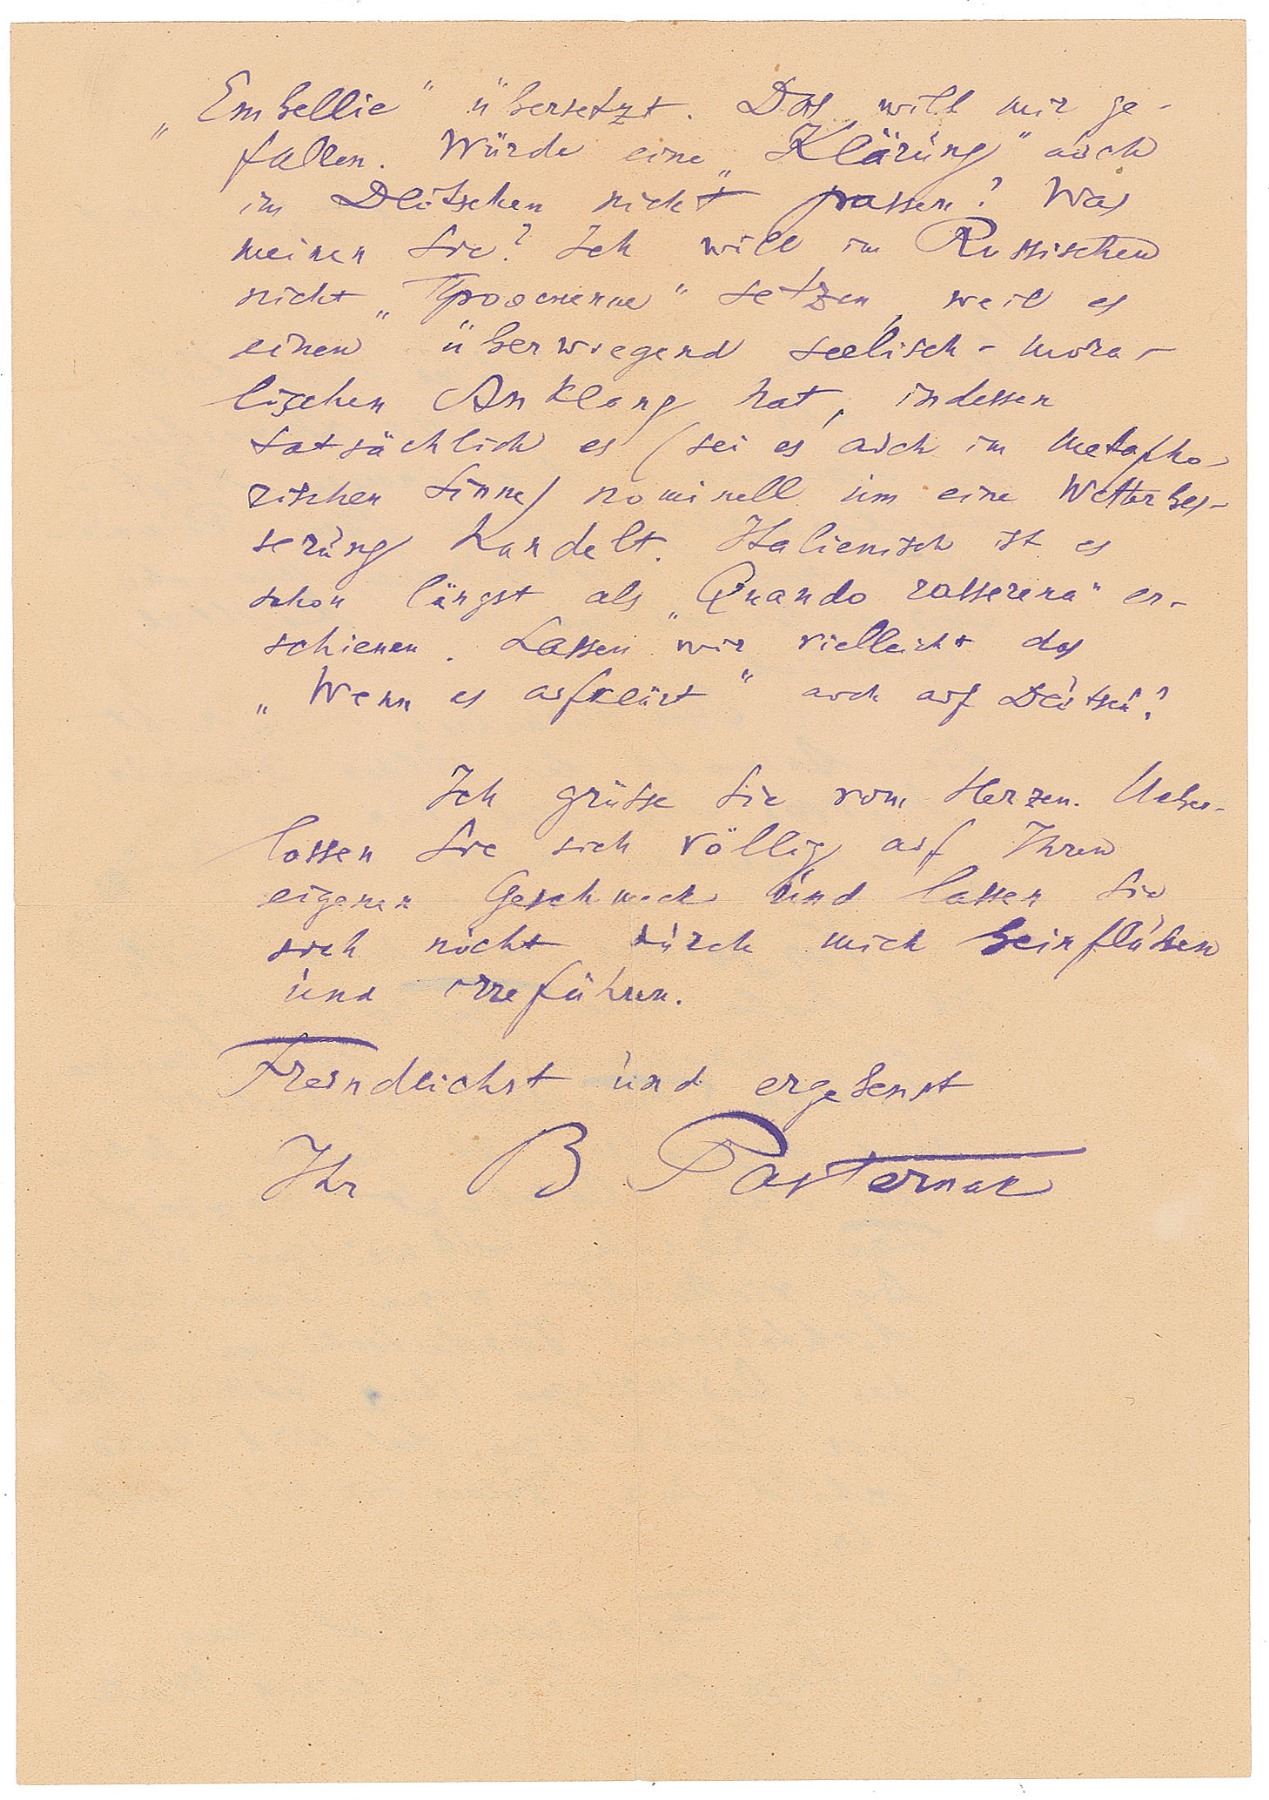 „Embellie“ übersetzt. Das will mir ge-
fallen. Würde eine „Klärung“ auch
im Deutschen nicht passen? Was
meinen Sie? Ich will im Russischen
nicht „Прояснение“ setzen, weil es
einen überwiegend seelisch-mora-
lischen Anklang hat, indessen
tatsächlich es (sei es auch im metapho-
rischen Sinne) nominell um eine Wetterbes-
serung handelt. Italienisch ist es
schon längst als „Quando rasserena“ er-
schienen. Lassen wir vielleicht das
„Wenn es aufklärt“ auch auf Deutsch?
Ich grüsse Sie vom Herzen. Ueber-
lassen Sie sich völlig auf Ihren
eigenen Geschmack und lassen Sie
sich nicht durch mich beinflußen
und irreführen.
Freundlichst und ergebenst
Ihr B Pasternak